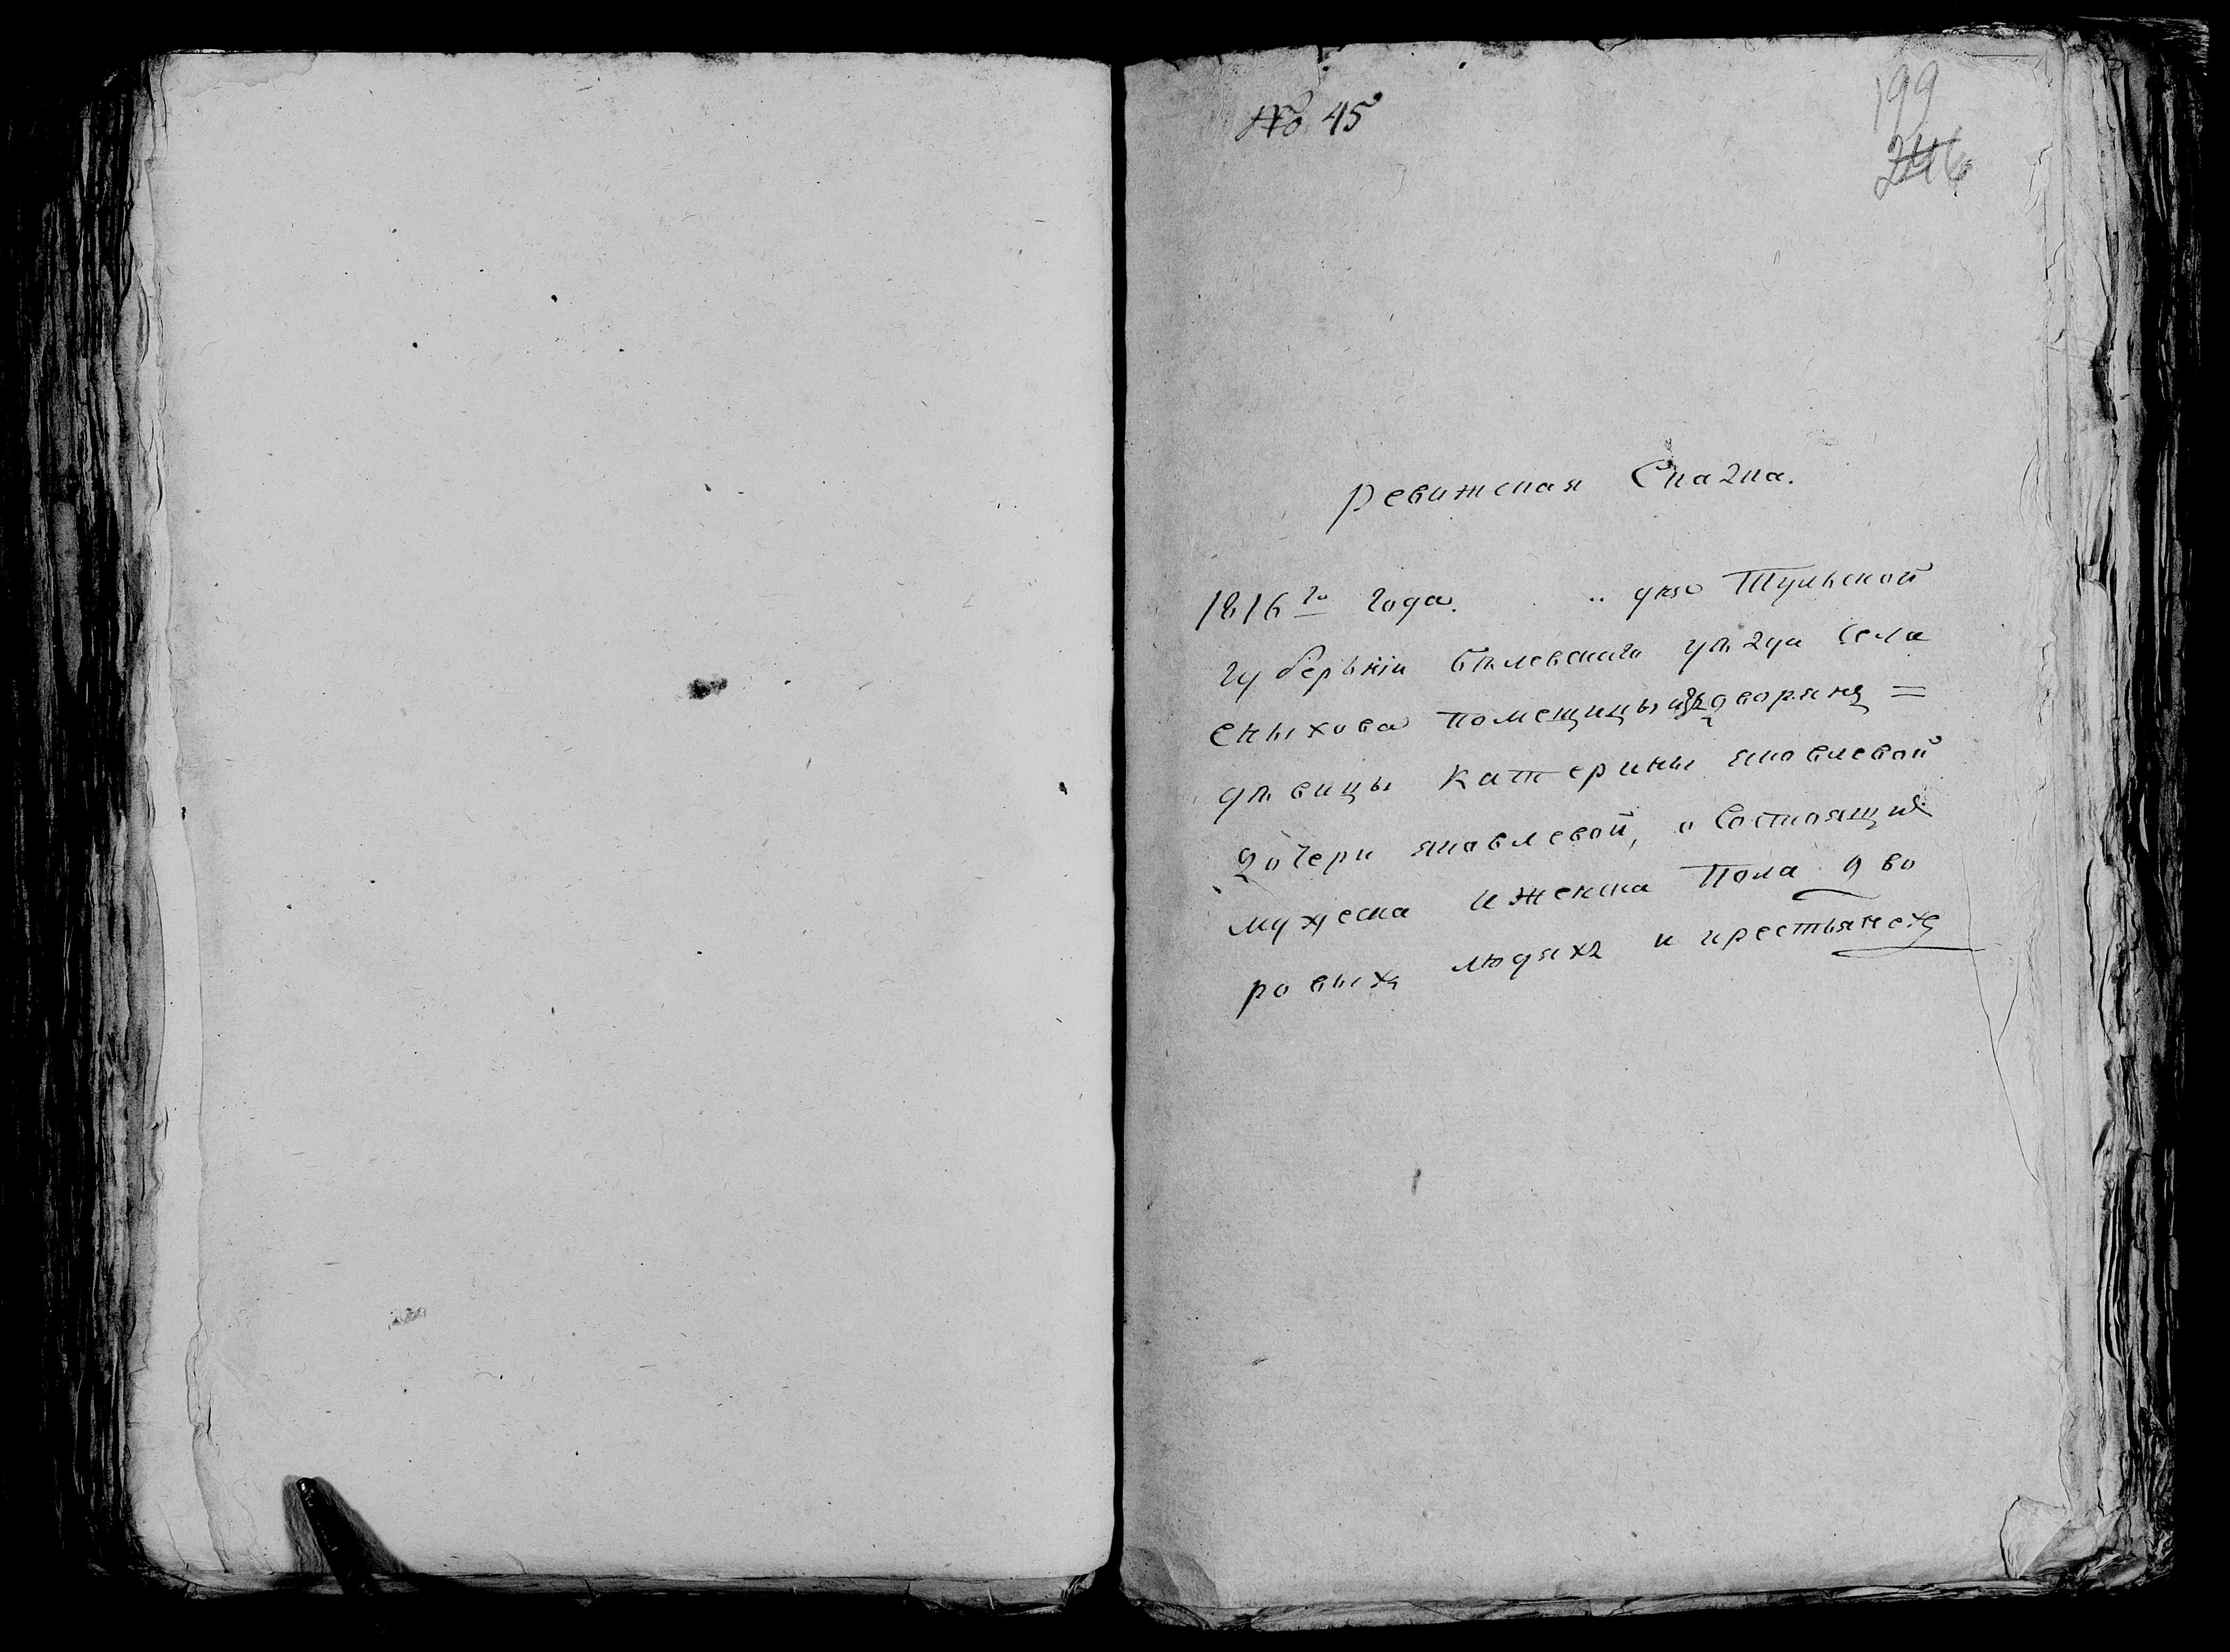 № 45
199
246
Ревижская Сказка.
1816го года. дня Тульской
губерьнии белевскаго уѣзда села
помещицы изъ дворянъ =
дѣвицы катерины яковлевой
дочери яковлевой, о состоящих
мужеска и женска пола дво
ровыхъ людяхъ и крестьянехъ